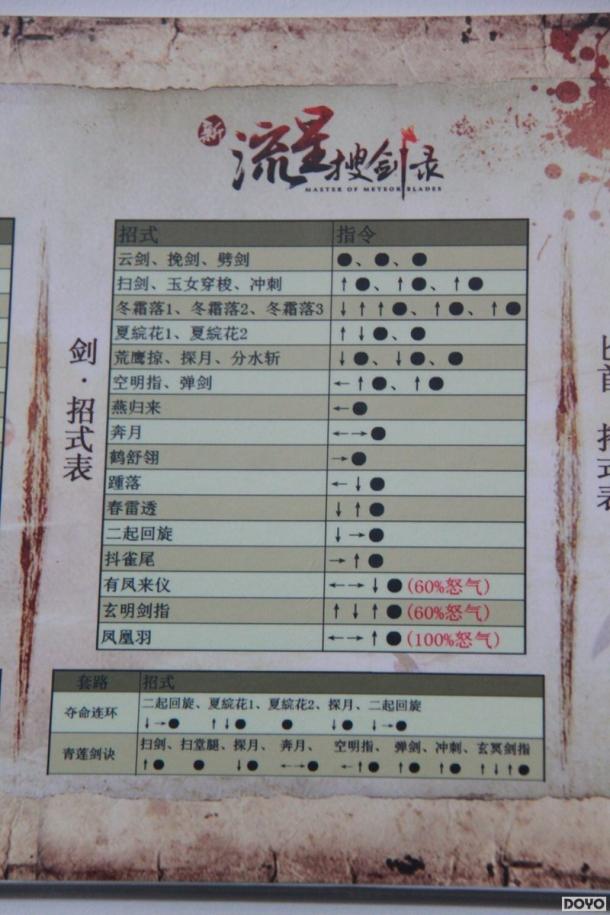 新 流星搜剑录
MASTER OF METEOR BLADES
剑·招式表
招式 指令
云剑、挽剑、劈剑 ●、●、●
扫剑、玉女穿梭、冲刺 ↑●、↑●、↑●
冬霜落1、冬霜落2、冬霜落3 ↓↑↑●、↑●、↑●
夏綄花1、夏綄花2 ↑↓●、●
荒鹰掠、探月、分水斩 ↓●、↓●、●
空明指、弹剑 ←↑●、↑●
燕归来 ←●
奔月 ←→●
鹤舒翎 →●
踵落 ←↓●
春雷透 ↓↑●
二起回旋 ↓→●
抖雀尾 →↑●
有凤来仪 ←→↓●(60%怒气)
玄明剑指 ↑↓↑●(60%怒气)
凤凰羽 ←→↑●(100%怒气)
套路 招式
夺命连环 二起回旋、夏綄花1、夏綄花2、探月、二起回旋
↓→● ↑↓● ● ↓● ↓→●
青莲剑诀 扫剑、扫堂腿、探月、奔月、空明指、弹剑、冲刺、玄冥剑指
↑● ● ↓● ←→● ←↑● ↑● ↑● ↑↓↑●
招式表
DOYO